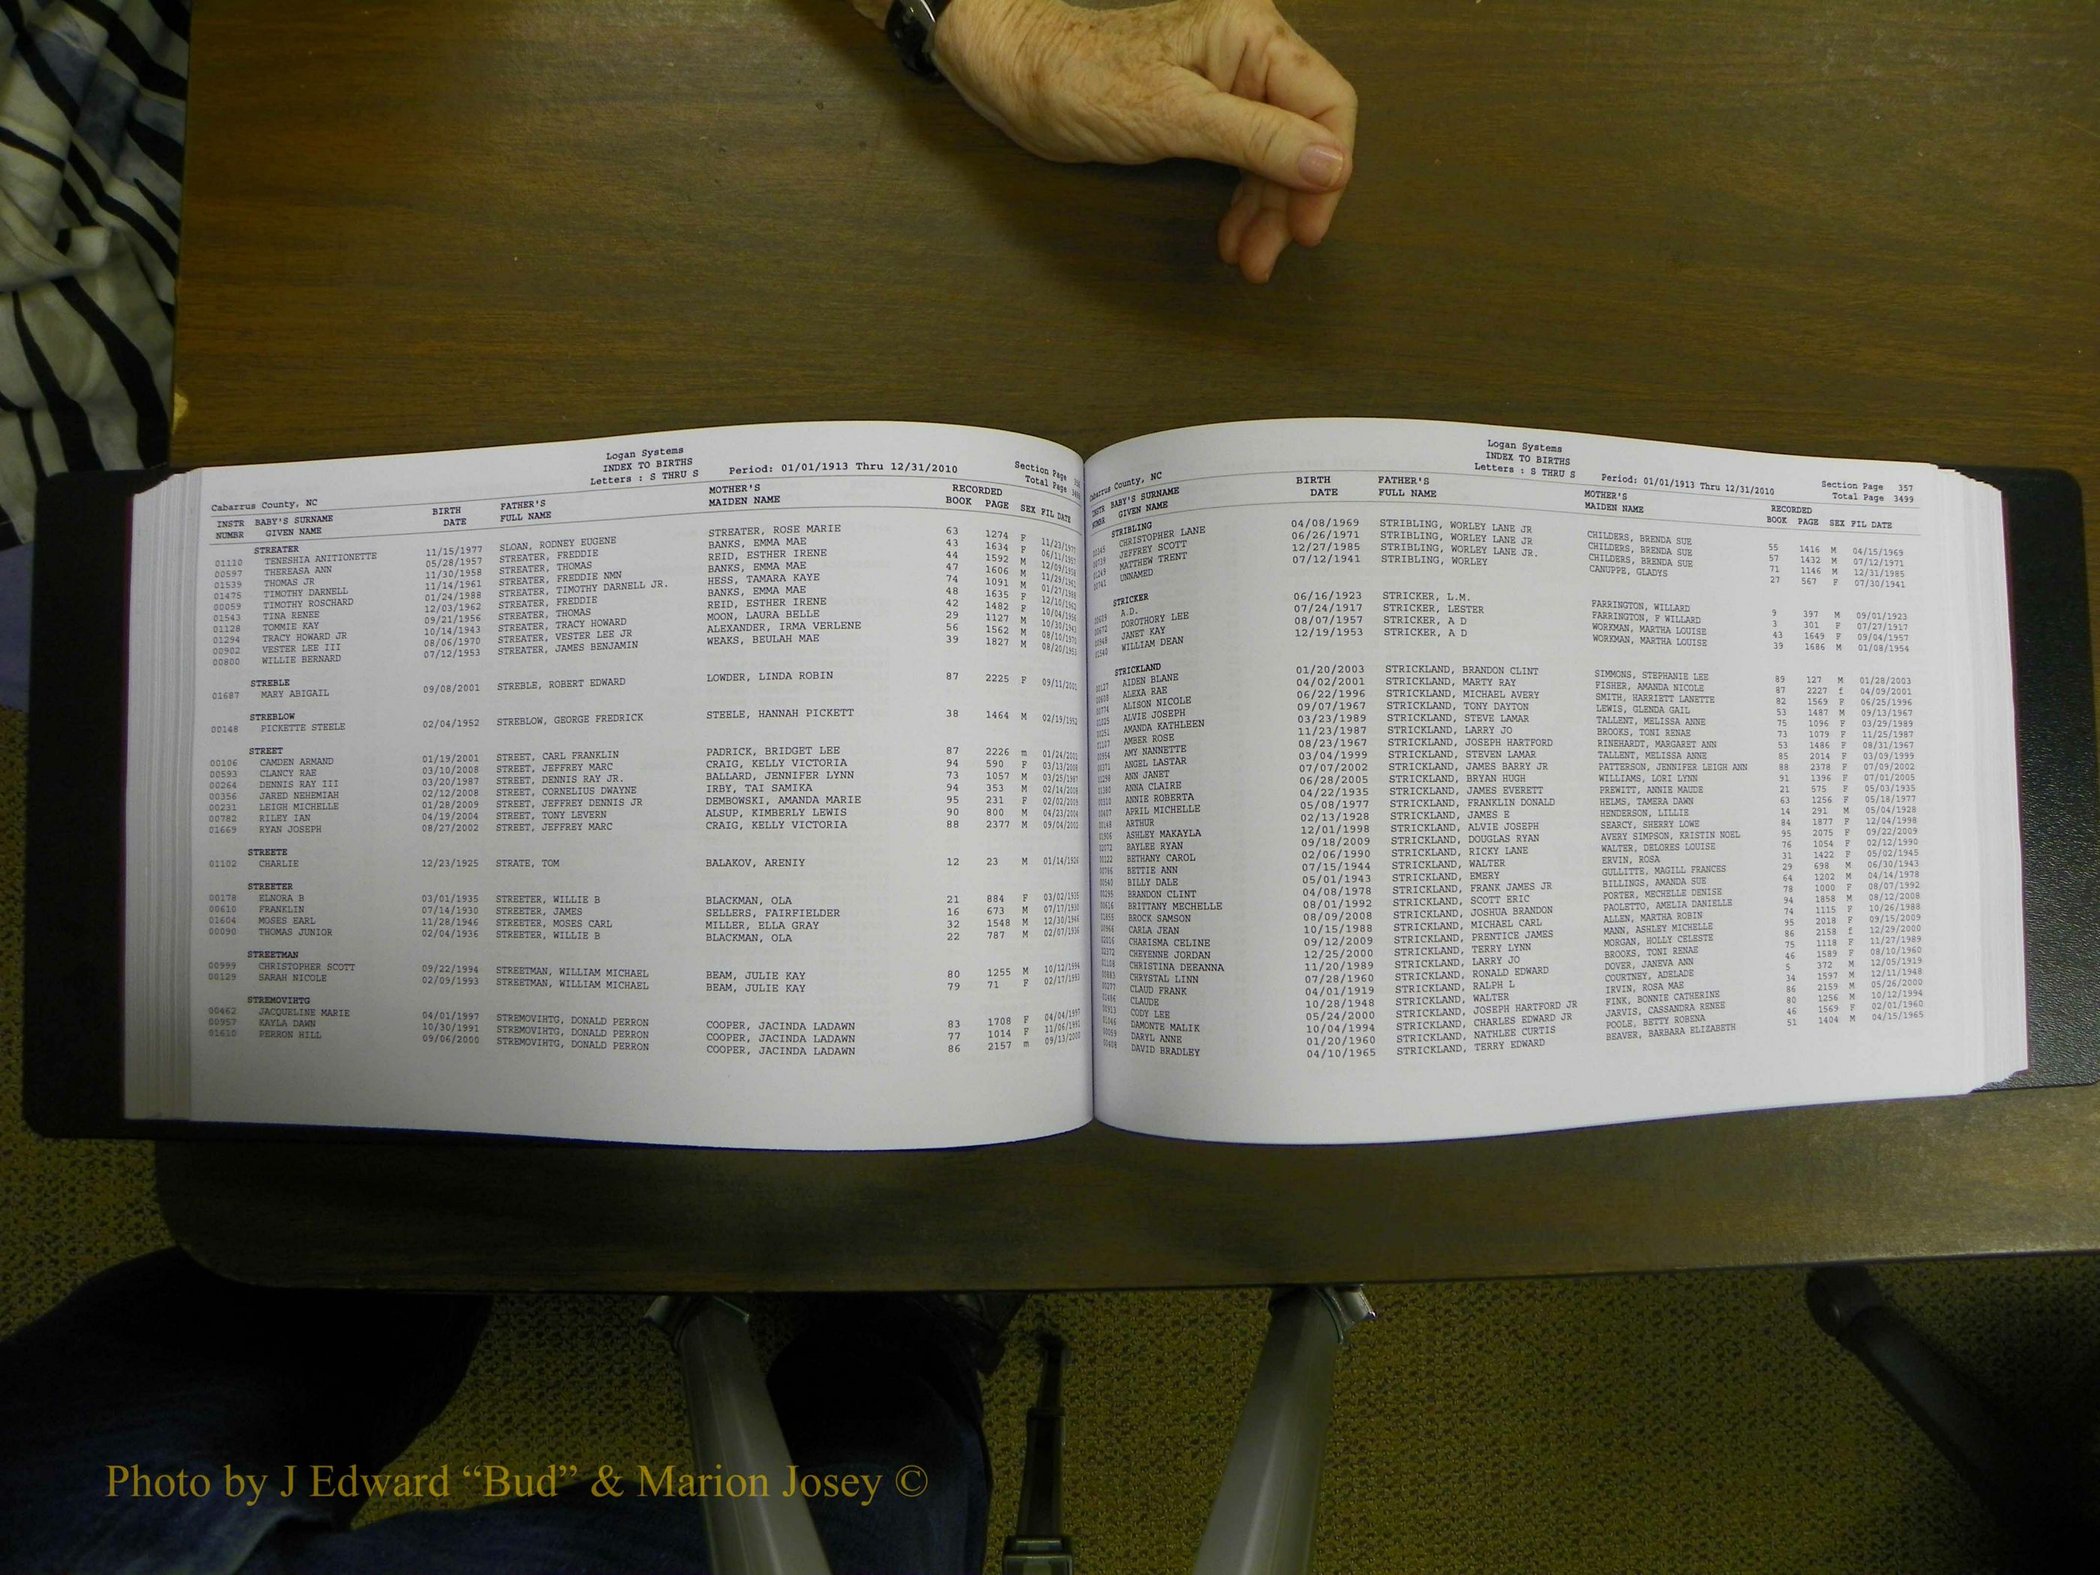 Logan Systems
INDEX TO BIRTHS
Letters : S THRU S Period: 01/01/1913 Thru 12/31/2010
Section Page
Total Page
Cabarrus County, NC
INSTR BABY'S SURNAME BIRTH FATHER'S MOTHER'S RECORDED
NUMBR GIVEN NAME DATE FULL NAME MAIDEN NAME BOOK PAGE SEX FIL DATE
STREATER
01110 TENESHIA ANITIONETTE 11/15/1977 SLOAN, RODNEY EUGENE STREATER, ROSE MARIE 63 1274 F 11/23/1977
00597 THEREASA ANN 05/28/1957 STREATER, FREDDIE BANKS, EMMA MAE 43 1634 F 06/11/1957
01539 THOMAS JR 11/30/1958 STREATER, THOMAS REID, ESTHER IRENE 44 1592 M 12/09/1958
01475 TIMOTHY DARNELL 11/14/1961 STREATER, FREDDIE NMN BANKS, EMMA MAE 47 1606 M 11/29/1961
00059 TIMOTHY ROSCHARD 01/24/1988 STREATER, TIMOTHY DARNELL JR. HESS, TAMARA KAYE 74 1091 M 01/27/1988
01543 TINA RENEE 12/03/1962 STREATER, FREDDIE BANKS, EMMA MAE 48 1635 F 12/10/1962
01128 TOMMIE KAY 09/21/1956 STREATER, THOMAS REID, ESTHER IRENE 42 1482 F 10/04/1956
01294 TRACY HOWARD JR 10/14/1943 STREATER, TRACY HOWARD MOON, LAURA BELLE 29 1127 M 10/30/1943
00902 VESTER LEE III 08/06/1970 STREATER, VESTER LEE JR ALEXANDER, IRMA VERLENE 56 1562 M 08/10/1970
00800 WILLIE BERNARD 07/12/1953 STREATER, JAMES BENJAMIN WEAKS, BEULAH MAE 39 1827 M 08/20/1953
STREBLE
01687 MARY ABIGAIL 09/08/2001 STREBLE, ROBERT EDWARD LOWDER, LINDA ROBIN 87 2225 F 09/11/2001
STREBLOW
00148 PICKETTE STEELE 02/04/1952 STREBLOW, GEORGE FREDRICK STEELE, HANNAH PICKETT 38 1464 M 02/19/1952
STREET
00106 CAMDEN ARMAND 01/19/2001 STREET, CARL FRANKLIN PADRICK, BRIDGET LEE 87 2226 m 01/24/2001
00593 CLANCY RAE 03/10/2008 STREET, JEFFREY MARC CRAIG, KELLY VICTORIA 94 590 F 03/13/2008
00264 DENNIS RAY III 03/20/1987 STREET, DENNIS RAY JR. BALLARD, JENNIFER LYNN 73 1057 M 03/25/1987
00356 JARED NEHEMIAH 02/12/2008 STREET, CORNELIUS DWAYNE IRBY, TAI SAMIKA 94 353 M 02/14/2008
00231 LEIGH MICHELLE 01/28/2009 STREET, JEFFREY DENNIS JR DEMBOWSKI, AMANDA MARIE 95 231 F 02/02/2009
00782 RILEY IAN 04/19/2004 STREET, TONY LEVERN ALSUP, KIMBERLY LEWIS 90 800 M 04/23/2004
01669 RYAN JOSEPH 08/27/2002 STREET, JEFFREY MARC CRAIG, KELLY VICTORIA 88 2377 M 09/04/2002
STREETE
01102 CHARLIE 12/23/1925 STRATE, TOM BALAKOV, ARENIY 12 23 M 01/14/1926
STREETER
00178 ELNORA B 03/01/1935 STREETER, WILLIE B BLACKMAN, OLA 21 884 F 03/02/1935
00610 FRANKLIN 07/14/1930 STREETER, JAMES SELLERS, FAIRFIELDER 16 673 M 07/17/1930
01604 MOSES EARL 11/28/1946 STREETER, MOSES CARL MILLER, ELLA GRAY 32 1548 M 12/30/1946
00090 THOMAS JUNIOR 02/04/1936 STREETER, WILLIE B BLACKMAN, OLA 22 787 M 02/07/1936
STREETMAN
00999 CHRISTOPHER SCOTT 09/22/1994 STREETMAN, WILLIAM MICHAEL BEAM, JULIE KAY 80 1255 M 10/12/1994
00129 SARAH NICOLE 02/09/1993 STREETMAN, WILLIAM MICHAEL BEAM, JULIE KAY 79 71 F 02/17/1993
STREMOVIHTG
00462 JACQUELINE MARIE 04/01/1997 STREMOVIHTG, DONALD PERRON COOPER, JACINDA LADAWN 83 1708 F 04/04/1997
00957 KAYLA DAWN 10/30/1991 STREMOVIHTG, DONALD PERRON COOPER, JACINDA LADAWN 77 1014 F 11/06/1991
01610 PERRON HILL 09/06/2000 STREMOVIHTG, DONALD PERRON COOPER, JACINDA LADAWN 86 2157 m 09/13/2000
Logan Systems
INDEX TO BIRTHS
Letters : S THRU S Period: 01/01/1913 Thru 12/31/2010
Section Page 357
Total Page 3499
Cabarrus County, NC
INSTR BABY'S SURNAME BIRTH FATHER'S MOTHER'S RECORDED
NUMBR GIVEN NAME DATE FULL NAME MAIDEN NAME BOOK PAGE SEX FIL DATE
STRIBLING
CHRISTOPHER LANE 04/08/1969 STRIBLING, WORLEY LANE JR CHILDERS, BRENDA SUE 55 1416 M 04/15/1969
JEFFREY SCOTT 06/26/1971 STRIBLING, WORLEY LANE JR CHILDERS, BRENDA SUE 57 1432 M 07/12/1971
MATTHEW TRENT 12/27/1985 STRIBLING, WORLEY LANE JR. CHILDERS, BRENDA SUE 71 1146 M 12/31/1985
UNNAMED 07/12/1941 STRIBLING, WORLEY CANUPPE, GLADYS 27 567 F 07/30/1941
STRICKER
A.D. 06/16/1923 STRICKER, L.M. FARRINGTON, WILLARD 9 397 M 09/01/1923
DOROTHORY LEE 07/24/1917 STRICKER, LESTER FARRINGTON, F WILLARD 3 301 F 07/27/1917
JANET KAY 08/07/1957 STRICKER, A D WORKMAN, MARTHA LOUISE 43 1649 F 09/04/1957
WILLIAM DEAN 12/19/1953 STRICKER, A D WORKMAN, MARTHA LOUISE 39 1686 M 01/08/1954
STRICKLAND
AIDEN BLANE 01/20/2003 STRICKLAND, BRANDON CLINT SIMMONS, STEPHANIE LEE 89 127 M 01/28/2003
ALEXA RAE 04/02/2001 STRICKLAND, MARTY RAY FISHER, AMANDA NICOLE 87 2227 f 04/09/2001
ALISON NICOLE 06/22/1996 STRICKLAND, MICHAEL AVERY SMITH, HARRIETT LANETTE 82 1569 F 06/25/1996
ALVIE JOSEPH 09/07/1967 STRICKLAND, TONY DAYTON LEWIS, GLENDA GAIL 53 1487 M 09/13/1967
AMANDA KATHLEEN 03/23/1989 STRICKLAND, STEVE LAMAR TALLENT, MELISSA ANNE 75 1096 F 03/29/1989
AMBER ROSE 11/23/1987 STRICKLAND, LARRY JO BROOKS, TONI RENAE 73 1079 F 11/25/1987
AMY NANNETTE 08/23/1967 STRICKLAND, JOSEPH HARTFORD RINEHARDT, MARGARET ANN 53 1486 F 08/31/1967
ANGEL LASTAR 03/04/1999 STRICKLAND, STEVEN LAMAR TALLENT, MELISSA ANNE 85 2014 F 03/09/1999
ANN JANET 07/07/2002 STRICKLAND, JAMES BARRY JR PATTERSON, JENNIFER LEIGH ANN 88 2378 F 07/09/2002
ANNA CLAIRE 06/28/2005 STRICKLAND, BRYAN HUGH WILLIAMS, LORI LYNN 91 1396 F 07/01/2005
ANNIE ROBERTA 04/22/1935 STRICKLAND, JAMES EVERETT PREWITT, ANNIE MAUDE 21 575 F 05/03/1935
APRIL MICHELLE 05/08/1977 STRICKLAND, FRANKLIN DONALD HELMS, TAMERA DAWN 63 1256 F 05/18/1977
ARTHUR 02/13/1928 STRICKLAND, JAMES E HENDERSON, LILLIE 14 291 M 05/04/1928
ASHLEY MAKAYLA 12/01/1998 STRICKLAND, ALVIE JOSEPH SEARCY, SHERRY LOWE 84 1877 F 12/04/1998
BAYLEE RYAN 09/18/2009 STRICKLAND, DOUGLAS RYAN AVERY SIMPSON, KRISTIN NOEL 95 2075 F 09/22/2009
BETHANY CAROL 02/06/1990 STRICKLAND, RICKY LANE WALTER, DELORES LOUISE 76 1054 F 02/12/1990
BETTIE ANN 07/15/1944 STRICKLAND, WALTER ERVIN, ROSA 31 1422 F 05/02/1945
BILLY DALE 05/01/1943 STRICKLAND, EMERY GULLITTE, MAGILL FRANCES 29 698 M 06/30/1943
BRANDON CLINT 04/08/1978 STRICKLAND, FRANK JAMES JR BILLINGS, AMANDA SUE 64 1202 M 04/14/1978
BRITTANY MECHELLE 08/01/1992 STRICKLAND, SCOTT ERIC PORTER, MECHELLE DENISE 78 1000 F 08/07/1992
BROCK SAMSON 08/09/2008 STRICKLAND, JOSHUA BRANDON PAOLETTO, AMELIA DANIELLE 94 1858 M 08/12/2008
CARLA JEAN 10/15/1988 STRICKLAND, MICHAEL CARL ALLEN, MARTHA ROBIN 74 1115 F 10/26/1988
CHARISMA CELINE 09/12/2009 STRICKLAND, PRENTICE JAMES MANN, ASHLEY MICHELLE 95 2018 F 09/15/2009
CHEYENNE JORDAN 12/25/2000 STRICKLAND, TERRY LYNN MORGAN, HOLLY CELESTE 86 2158 f 12/29/2000
CHRISTINA DEEANNA 11/20/1989 STRICKLAND, LARRY JO BROOKS, TONI RENAE 75 1118 F 11/27/1989
CHRYSTAL LINN 07/28/1960 STRICKLAND, RONALD EDWARD DOVER, JANEVA ANN 46 1589 F 08/10/1960
CLAUD FRANK 04/01/1919 STRICKLAND, RALPH L COURTNEY, ADELADE 5 372 M 12/05/1919
CLAUDE 10/28/1948 STRICKLAND, WALTER IRVIN, ROSA MAE 34 1597 M 12/11/1948
CODY LEE 05/24/2000 STRICKLAND, JOSEPH HARTFORD JR FINK, BONNIE CATHERINE 86 2159 M 05/26/2000
DAMONTE MALIK 10/04/1994 STRICKLAND, CHARLES EDWARD JR JARVIS, CASSANDRA RENEE 80 1256 M 10/12/1994
DARYL ANNE 01/20/1960 STRICKLAND, NATHLEE CURTIS POOLE, BETTY ROBENA 46 1569 F 02/01/1960
DAVID BRADLEY 04/10/1965 STRICKLAND, TERRY EDWARD BEAVER, BARBARA ELIZABETH 51 1404 M 04/15/1965
Photo by J Edward “Bud” & Marion Josey ©